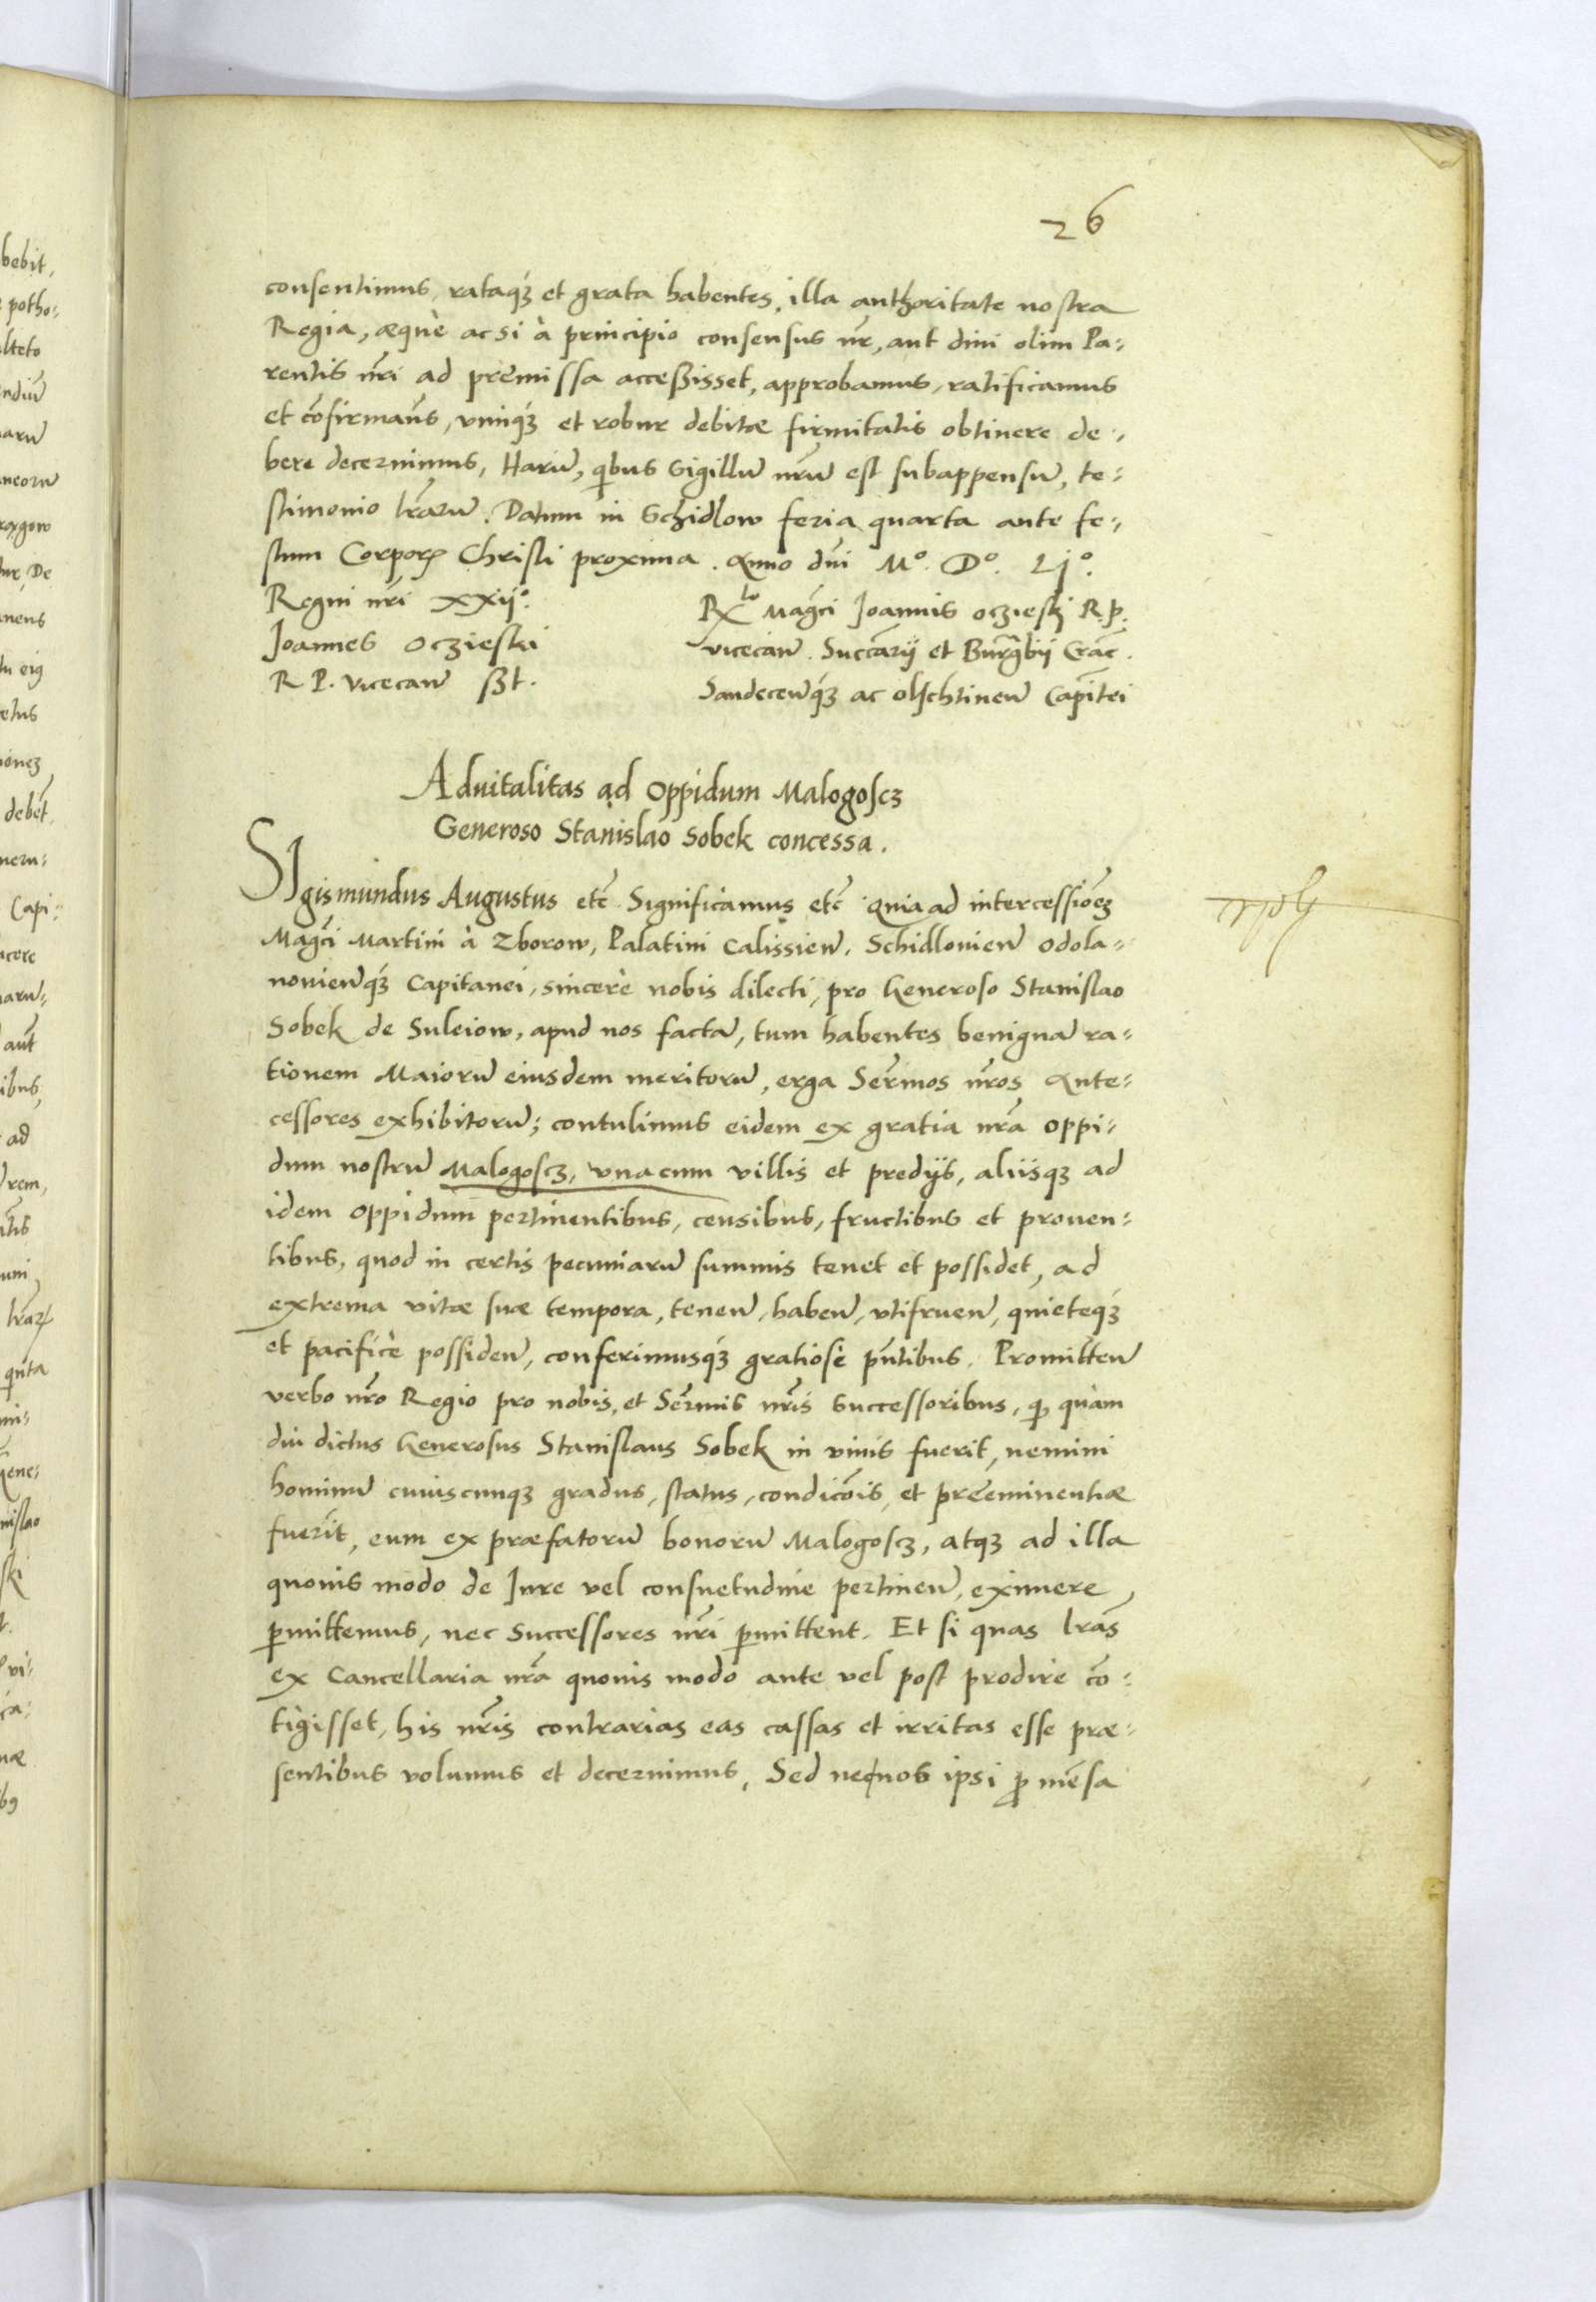 26
consentimus, rataq₃ et grata habentes, illa authoritate nostra
Regia, æquè ac si à principio consensus nr̃, aut diui olim Pa-
rentis nr̃i ad premissa acceßisset, approbamus, ratificamus
et cõfirmam̃s, vimq₃ et robur debitæ firmitatis obtinere de-
bere decernimus, Harũ, q̃bus Sigillũ nr̃ũ est subappensũ, te-
stimonio lr̃arũ. Datum in Schidlow feria quarta ante fe-
stum Corporꝭ Christi proxima. Anno dñi Mº. Dº. Ljº.
Regni nr̃i xxijº.
Joannes Ocziesski
R P. Vicecan̄ sßt.
Rᵒ Mag̃ci Joannis Ocziesskj R. P.
vicecan̄. Succãrij et Burg̃bij Crac̃.
Sandecen̄q₃ ac Olschtinen̄ Capitei
Aduitalitas ad Oppidum Malogoscz
Generoso Stanislao Sobek concessa.
SIgismundus Augustus etc̃ Significamus etc̃ Quia ad intercessiõe₃
Mag̃ci Martini à Zborow, Palatini Calissien̄, Schidlouien̄ Odola-
nouien̄q₃ Capitanei, sincerè nobis dilecti, pro Generoso Stanislao
Sobek de Suleiow, apud nos factã, tum habentes benignã ra-
tionem Maiorũ eiusdem meritorũ, erga Ser̃mos nr̃os Ante-
cessores exhibitorũ; contulimus eidem ex gratia nr̃a Oppi-
dum nostrũ Malogoscz, vnacum villis et predijs, aliisq₃ ad
idem Oppidum pertinentibus, censibus, fructibus et prouen-
tibus, quod in certis pecuniarũ summis tenet et possidet, ad
extrema vitæ suæ tempora, tenen̄, haben̄, vtifruen̄, quieteq₃
et pacificè possiden̄, conferimusq₃ gratiosè p̃ntibus. Promitten̄
verbo nr̃o Regio pro nobis, et Ser̃mis nr̃is Successoribus, q̃ quàm
diu dictus Generosus Stanislaus Sobek in viuis fuerit, nemini
hominũ cuiuscunq₃ gradus, status, condicõis, et preeminentiæ
fuerit, eum ex præfatorũ bonorũ Malogoscz, atq₃ ad illa
quouis modo de Jure vel consuetudine pertinen̄, eximere
p̱mittemus, nec Successores nr̃i p̱mittent. Et si quas lr̃as
ex Cancellaria nr̃a quouis modo ante vel post prodire cõ-
tigisset, his nr̃is contrarias eas cassas et irritas esse præ-
sentibus volumus et decernimus, Sed neq₃ nos ipsi ꝓ mẽsa